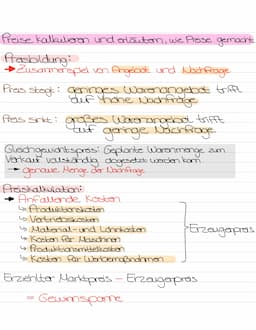 Preise kalkulieren und erläutern, wie Preise gemacht
Preisbildung:
→ Zusammenspiel von Angebot und Nachfrage
Preis steigt: geringes Warenangebot trifft
auf hohe Nachfrage
Preis sinkt: großes Warenangebot trifft
auf geringe Nachfrage
Gleichgewichtspreis: Geplante Warenmenge zum
Verkauf vollständig abgesetzt werden kann
→ genaue Menge der Nachfrage
Preiskalkulation:
→ Anfallende Kosten
↳ Produktionskosten
↳ Vertriebskosten
↳ Material- und Lohnkosten
↳ Kosten für Maschinen
↳ Produktionsmittelkosten
↳ Kosten für Werbemaßnahmen
Erzeugerpreis
Erziehlter Marktpreis - Erzeugerpreis
= Gewinnspanne